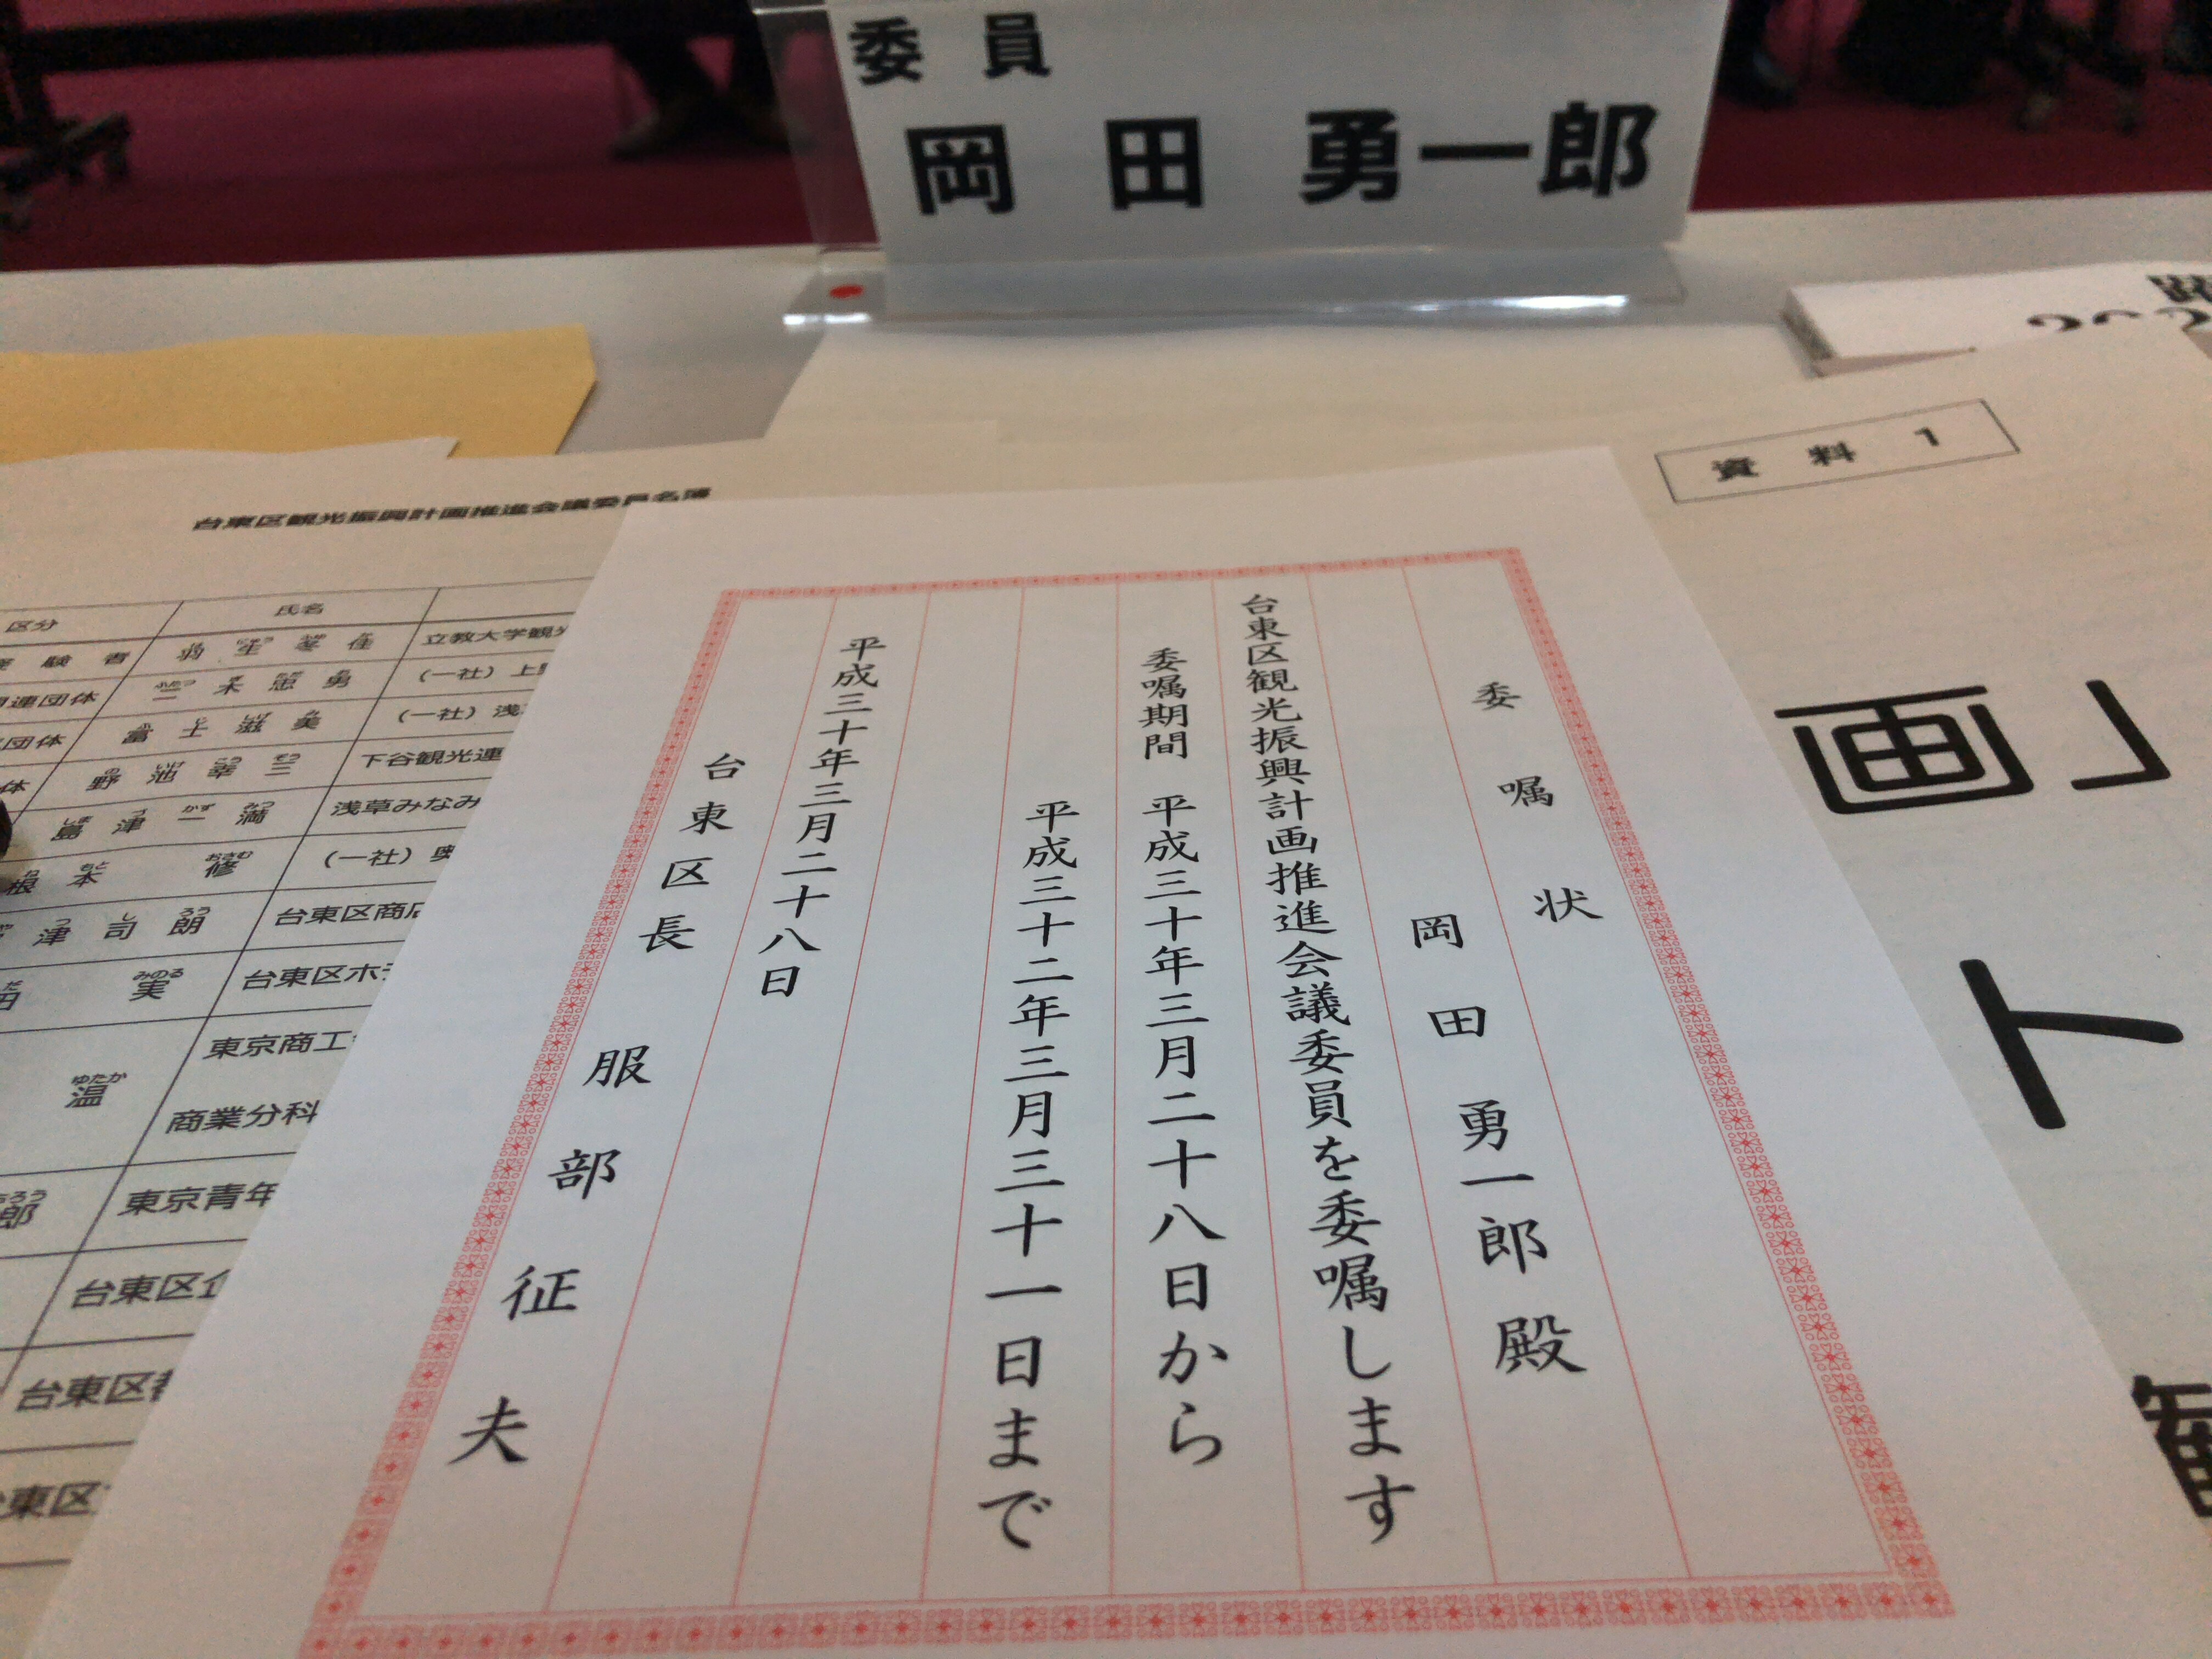 委員
岡田 勇一郎
資料 1
画」
ト
委嘱状
岡田 勇一郎 殿
台東区観光振興計画推進会議委員を委嘱します
委嘱期間 平成三十年三月二十八日から
平成三十二年三月三十一日まで
平成三十年三月二十八日
台東区長 服部征夫
台東区観光振興計画推進会議委員名簿
区分 氏名
験者 立教大学観光
連団体 二木忠勇 (一社)上野
団体 冨士滋美 (一社)浅
体 野池幸三 下谷観光連
島津一満 浅草みなみ
根本 修 (一社)奥
津司朗 台東区商店
田 実 台東区ホテ
温 東京商工
商業分科
郎 東京青年
台東区
台東区
台東区